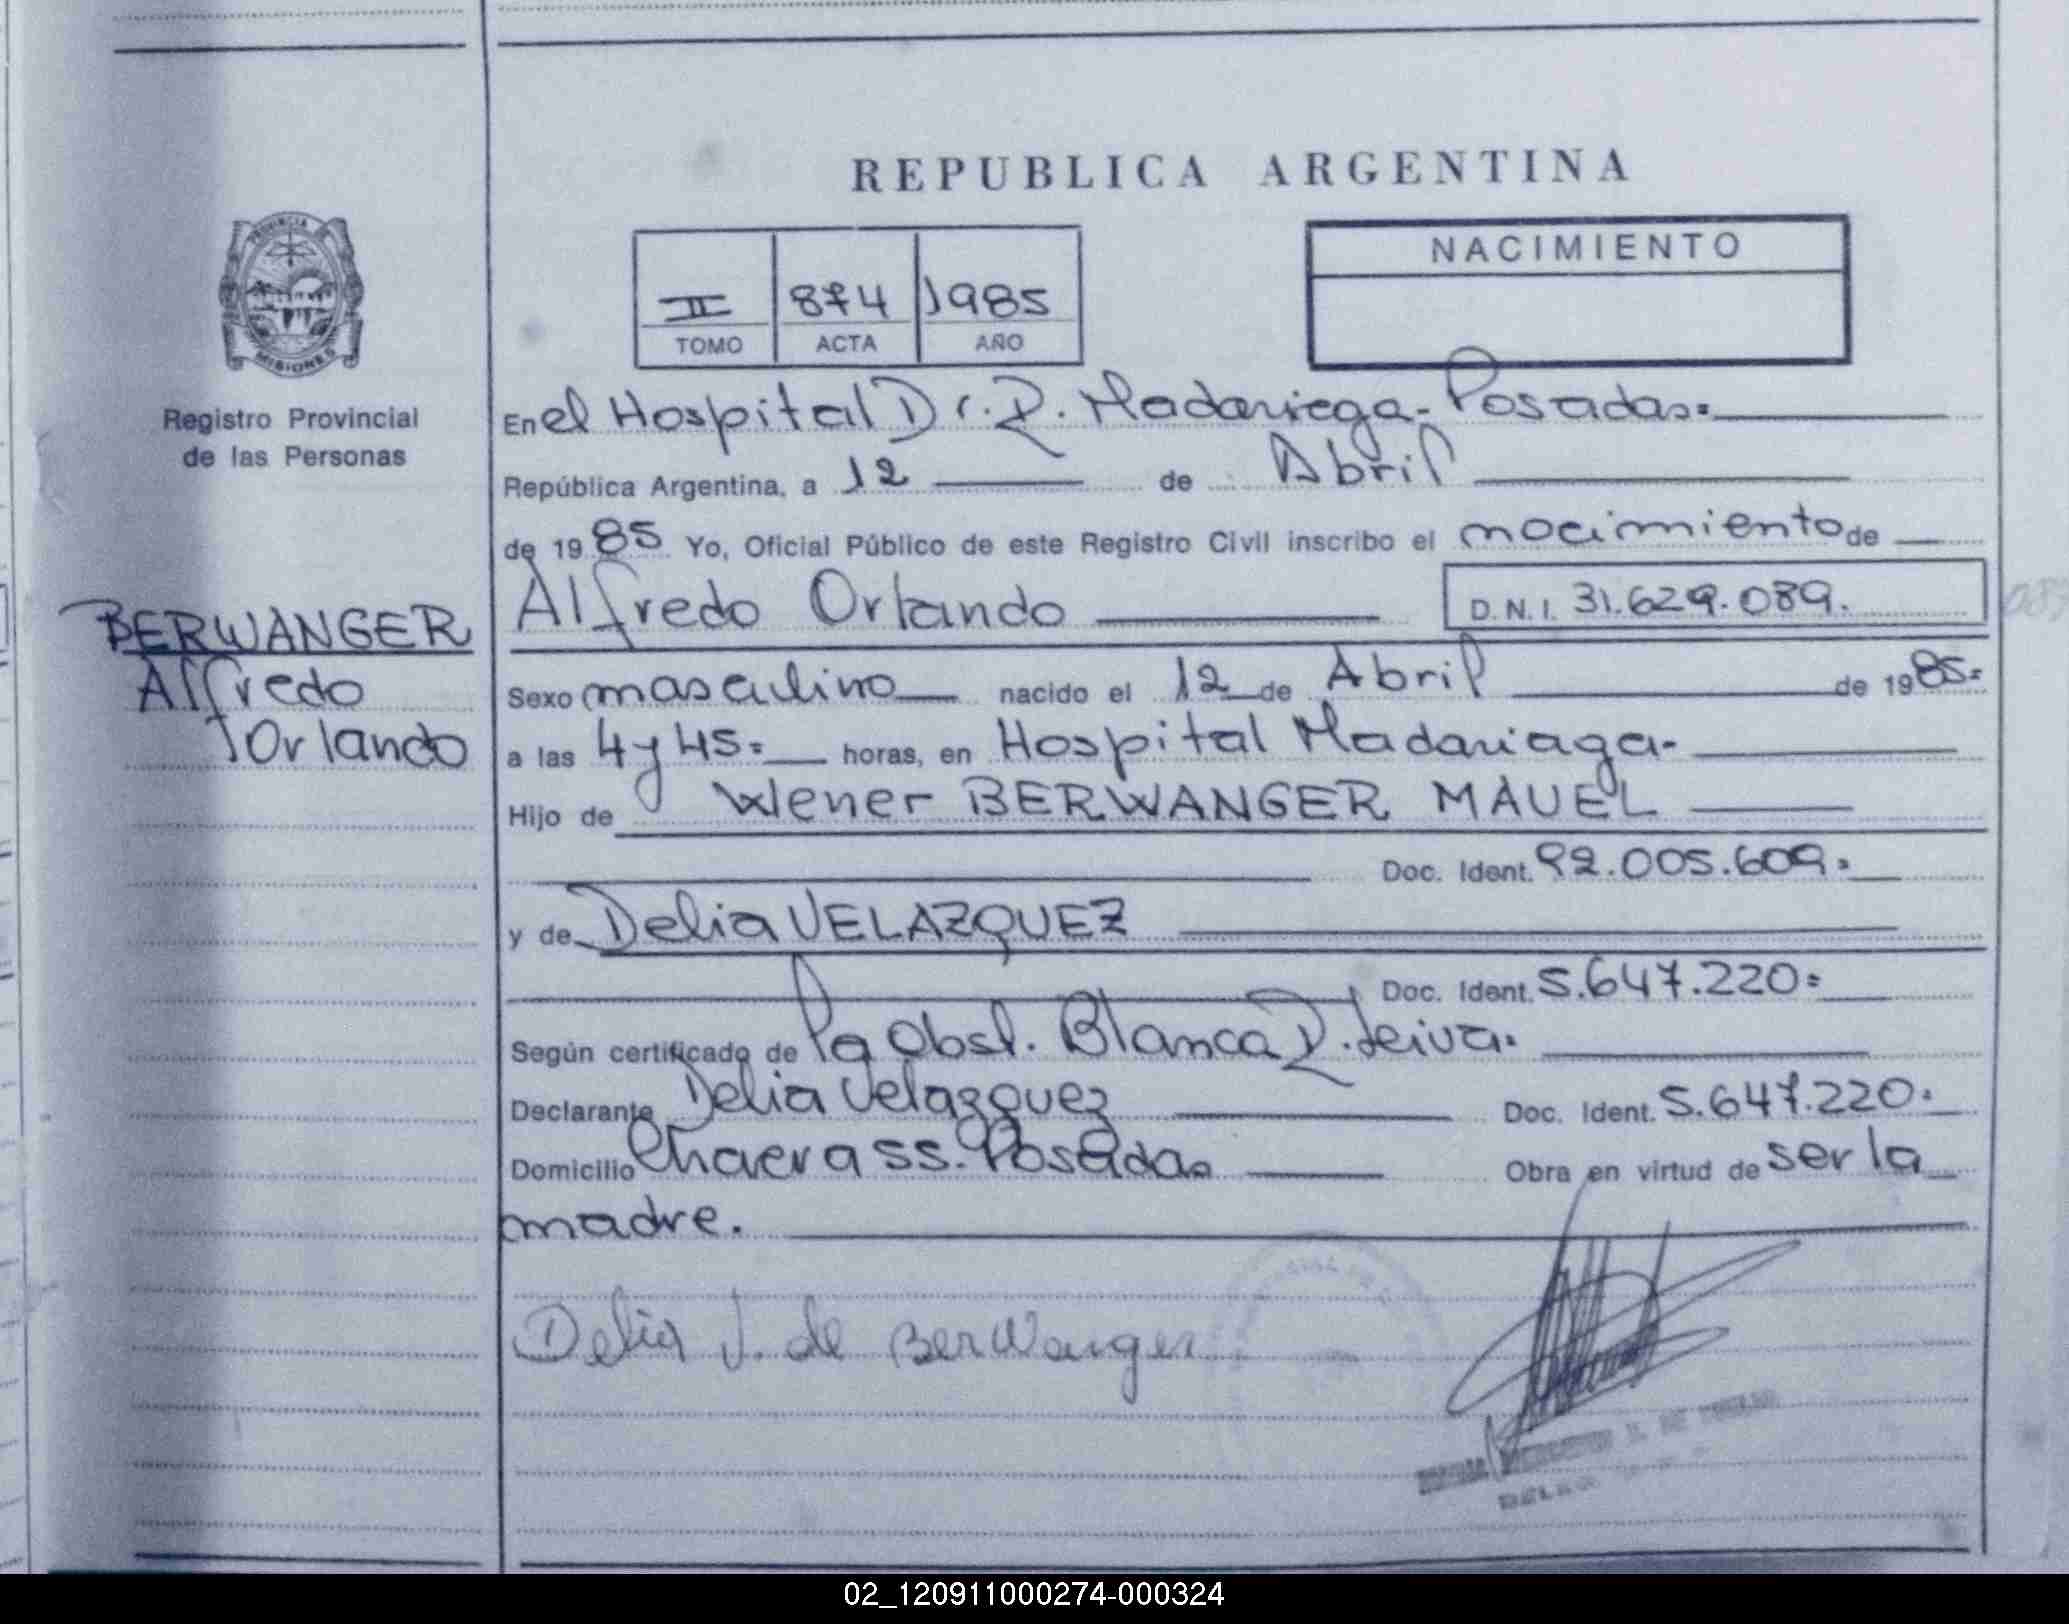 REPUBLICA ARGENTINA
PROVINCIA
MISIONES
Registro Provincial
de las Personas
NACIMIENTO
II 874 1985
TOMO ACTA AÑO
En el Hospital Dr. R. Madariega - Posadas.
República Argentina, a 12 de Abril
de 1985 Yo, Oficial Público de este Registro Civil inscribo el nacimiento de
Alfredo Orlando D.N.I. 31.629.089.
BERWANGER
Alfredo
Orlando
Sexo masculino nacido el 12 de Abril de 1985=
a las 4 y 45= horas, en Hospital Madariaga-
Hijo de Wener BERWANGER MAUEL
Doc. Ident. 92.005.609=
y de Delia VELAZQUEZ
Doc. Ident. 5.647.220=
Según certificado de la Obst. Blanca R. Leiva.
Declarante Delia Velazquez Doc. Ident. 5.647.220.
Domicilio Chacra 55. Posadas Obra en virtud de ser la
madre.
Delia V. de Berwanger
02_120911000274-000324